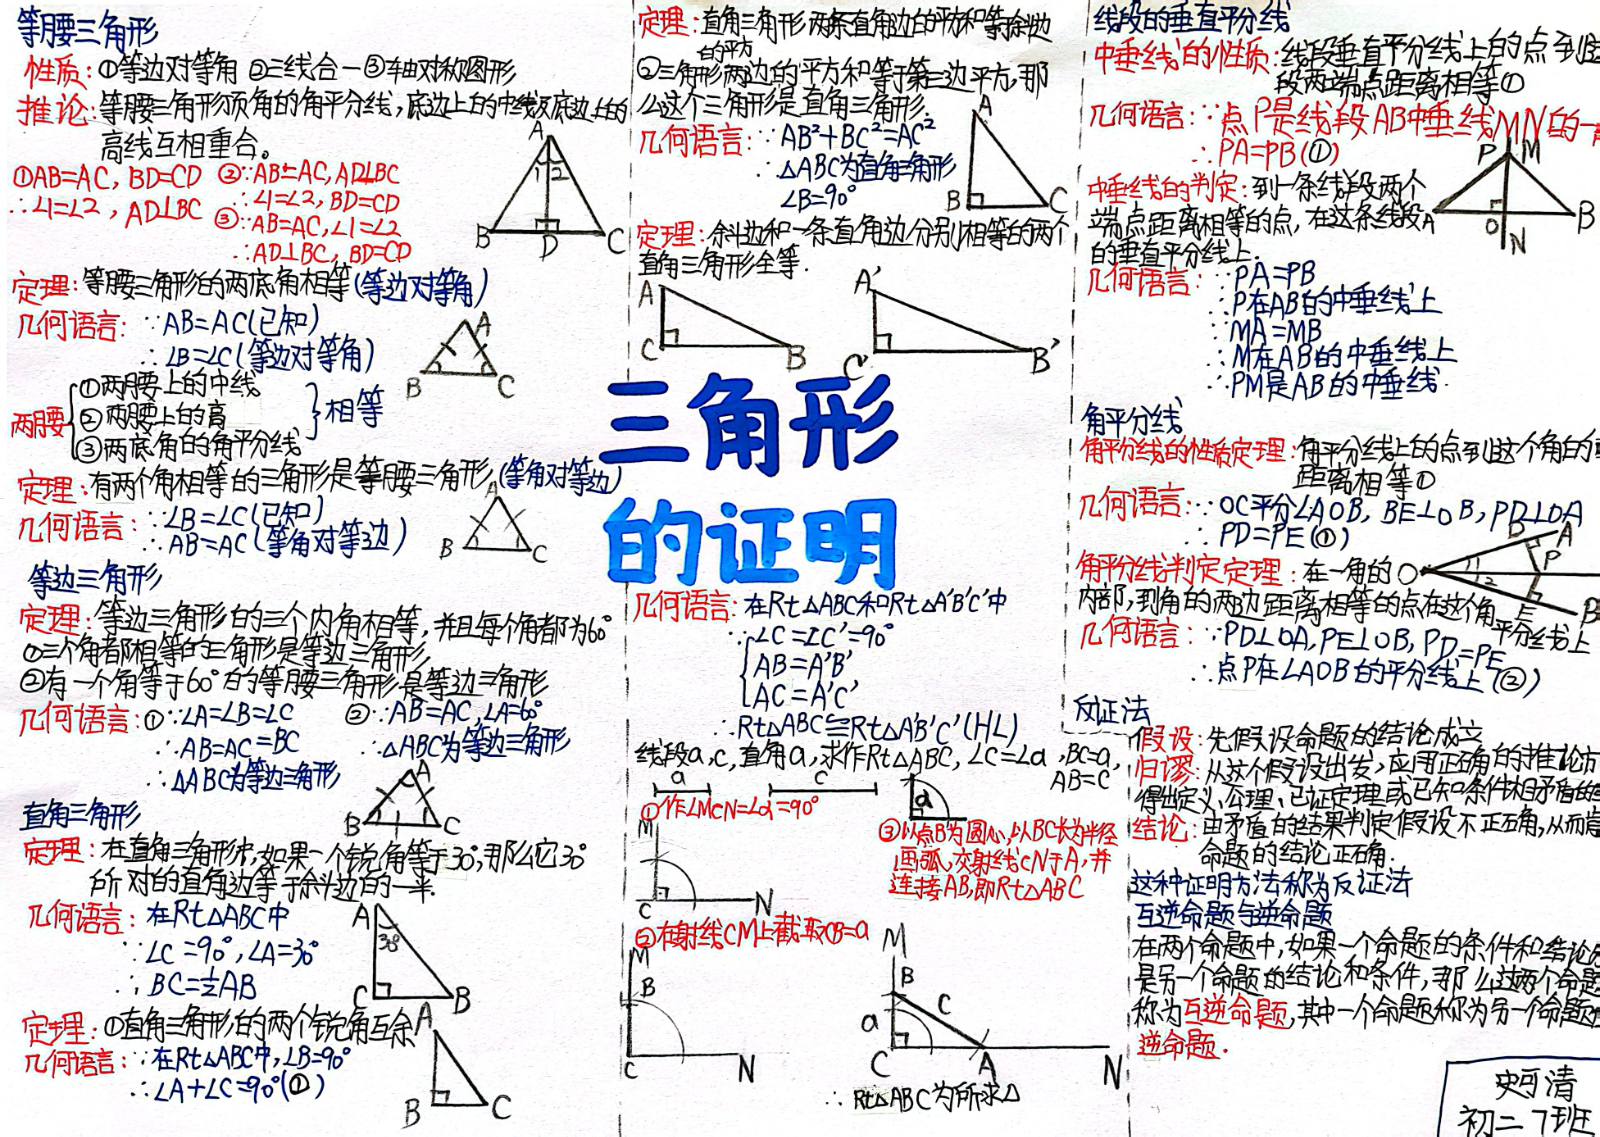 等腰三角形
性质:①等边对等角 ②三线合一 ③轴对称图形
推论:等腰三角形顶角的角平分线,底边上的中线及底边上的
高线互相重合。
①AB=AC, BD=CD ②∵AB=AC, AD⊥BC
∴∠1=∠2, AD⊥BC ∴∠1=∠2, BD=CD
③∵AB=AC,∠1=∠2
∴AD⊥BC, BD=CD
A
1 2
B D C
定理:等腰三角形的两底角相等(等边对等角)
几何语言:∵AB=AC(已知)
∴∠B=∠C(等边对等角)
A
B C
两腰
①两腰上的中线
②两腰上的高
③两底角的角平分线
相等
定理:有两个角相等的三角形是等腰三角形(等角对等边)
几何语言:∵∠B=∠C(已知)
∴AB=AC(等角对等边)
A
B C
等边三角形
定理:等边三角形的三个内角相等,并且每个角都为60°
①三个角都相等的三角形是等边三角形
②有一个角等于60°的等腰三角形是等边三角形
几何语言:①∵∠A=∠B=∠C ②∵AB=AC,∠A=60°
∴AB=AC=BC ∴△ABC为等边三角形
∴△ABC为等边三角形
A
B C
直角三角形
定理:在直角三角形中,如果一个锐角等于30°,那么它30°
所对的直角边等于斜边的一半.
几何语言:在Rt△ABC中
∵∠C=90°,∠A=30°
∴BC=½AB
A
30°
C B
定理:①直角三角形的两个锐角互余
几何语言:∵在Rt△ABC中,∠B=90°
∴∠A+∠C=90°(①)
A
B C
定理:直角三角形两条直角边的平方和等余斜边
的平方
②三角形两边的平方和等于第三边平方,那
么这个三角形是直角三角形.
几何语言:∵AB²+BC²=AC²
∴△ABC为直角三角形
∠B=90°
A
B C
定理:斜边和一条直角边分别相等的两个
直角三角形全等.
A
C B
A'
C' B'
三角形
的证明
几何语言:在Rt△ABC和Rt△A'B'C'中
∵∠C=∠C'=90°
AB=A'B'
AC=A'C'
∴Rt△ABC≌Rt△A'B'C'(HL)
线段a,c,直角a,求作Rt△ABC,∠C=∠a,BC=a,
AB=C
a c a
①作∠MCN=∠α=90°
M
C N
②在射线CM上截取CB=a
M
B
C N
③以点B为圆心,以BC长为半径
画弧,交射线CN于A,并
连接AB,即Rt△ABC
M
B
a c
C A N
∴Rt△ABC为所求△
线段的垂直平分线
中垂线的性质:线段垂直平分线上的点到这
段两端点距离相等①
几何语言:∵点P是线段AB中垂线MN的一
∴PA=PB(①)
P M
A B
O
N
中垂线的判定:到一条线段两个
端点距离相等的点,在这条线段
的垂直平分线上.
几何语言:∵PA=PB
∴P在AB的中垂线上
∵MA=MB
∴M在AB的中垂线上
∴PM是AB的中垂线.
角平分线
角平分线的性质定理:角平分线上的点到这个角的
距离相等①
几何语言:∵OC平分∠AOB, BE⊥OB, PD⊥OA
∴PD=PE(①)
D A
O 1 P
2
E B
角平分线判定定理:在一角的
内部,到角的两边距离相等的点在这个角平分线上
几何语言:∵PD⊥OA,PE⊥OB,PD=PE
∴点P在∠AOB的平分线上(②)
反证法
假设:先假设命题的结论成立
归谬:从这个假设出发,应用正确的推论方
得出定义、公理、已证定理或已知条件相矛盾的
结论:由矛盾的结果判定假设不正确,从而
命题的结论正确.
这种证明方法称为反证法
互逆命题与逆命题
在两个命题中,如果一个命题的条件和结论
是另一个命题的结论和条件,那么这两个命题
称为互逆命题,其中一个命题称为另一个命题
逆命题.
清
初二7班